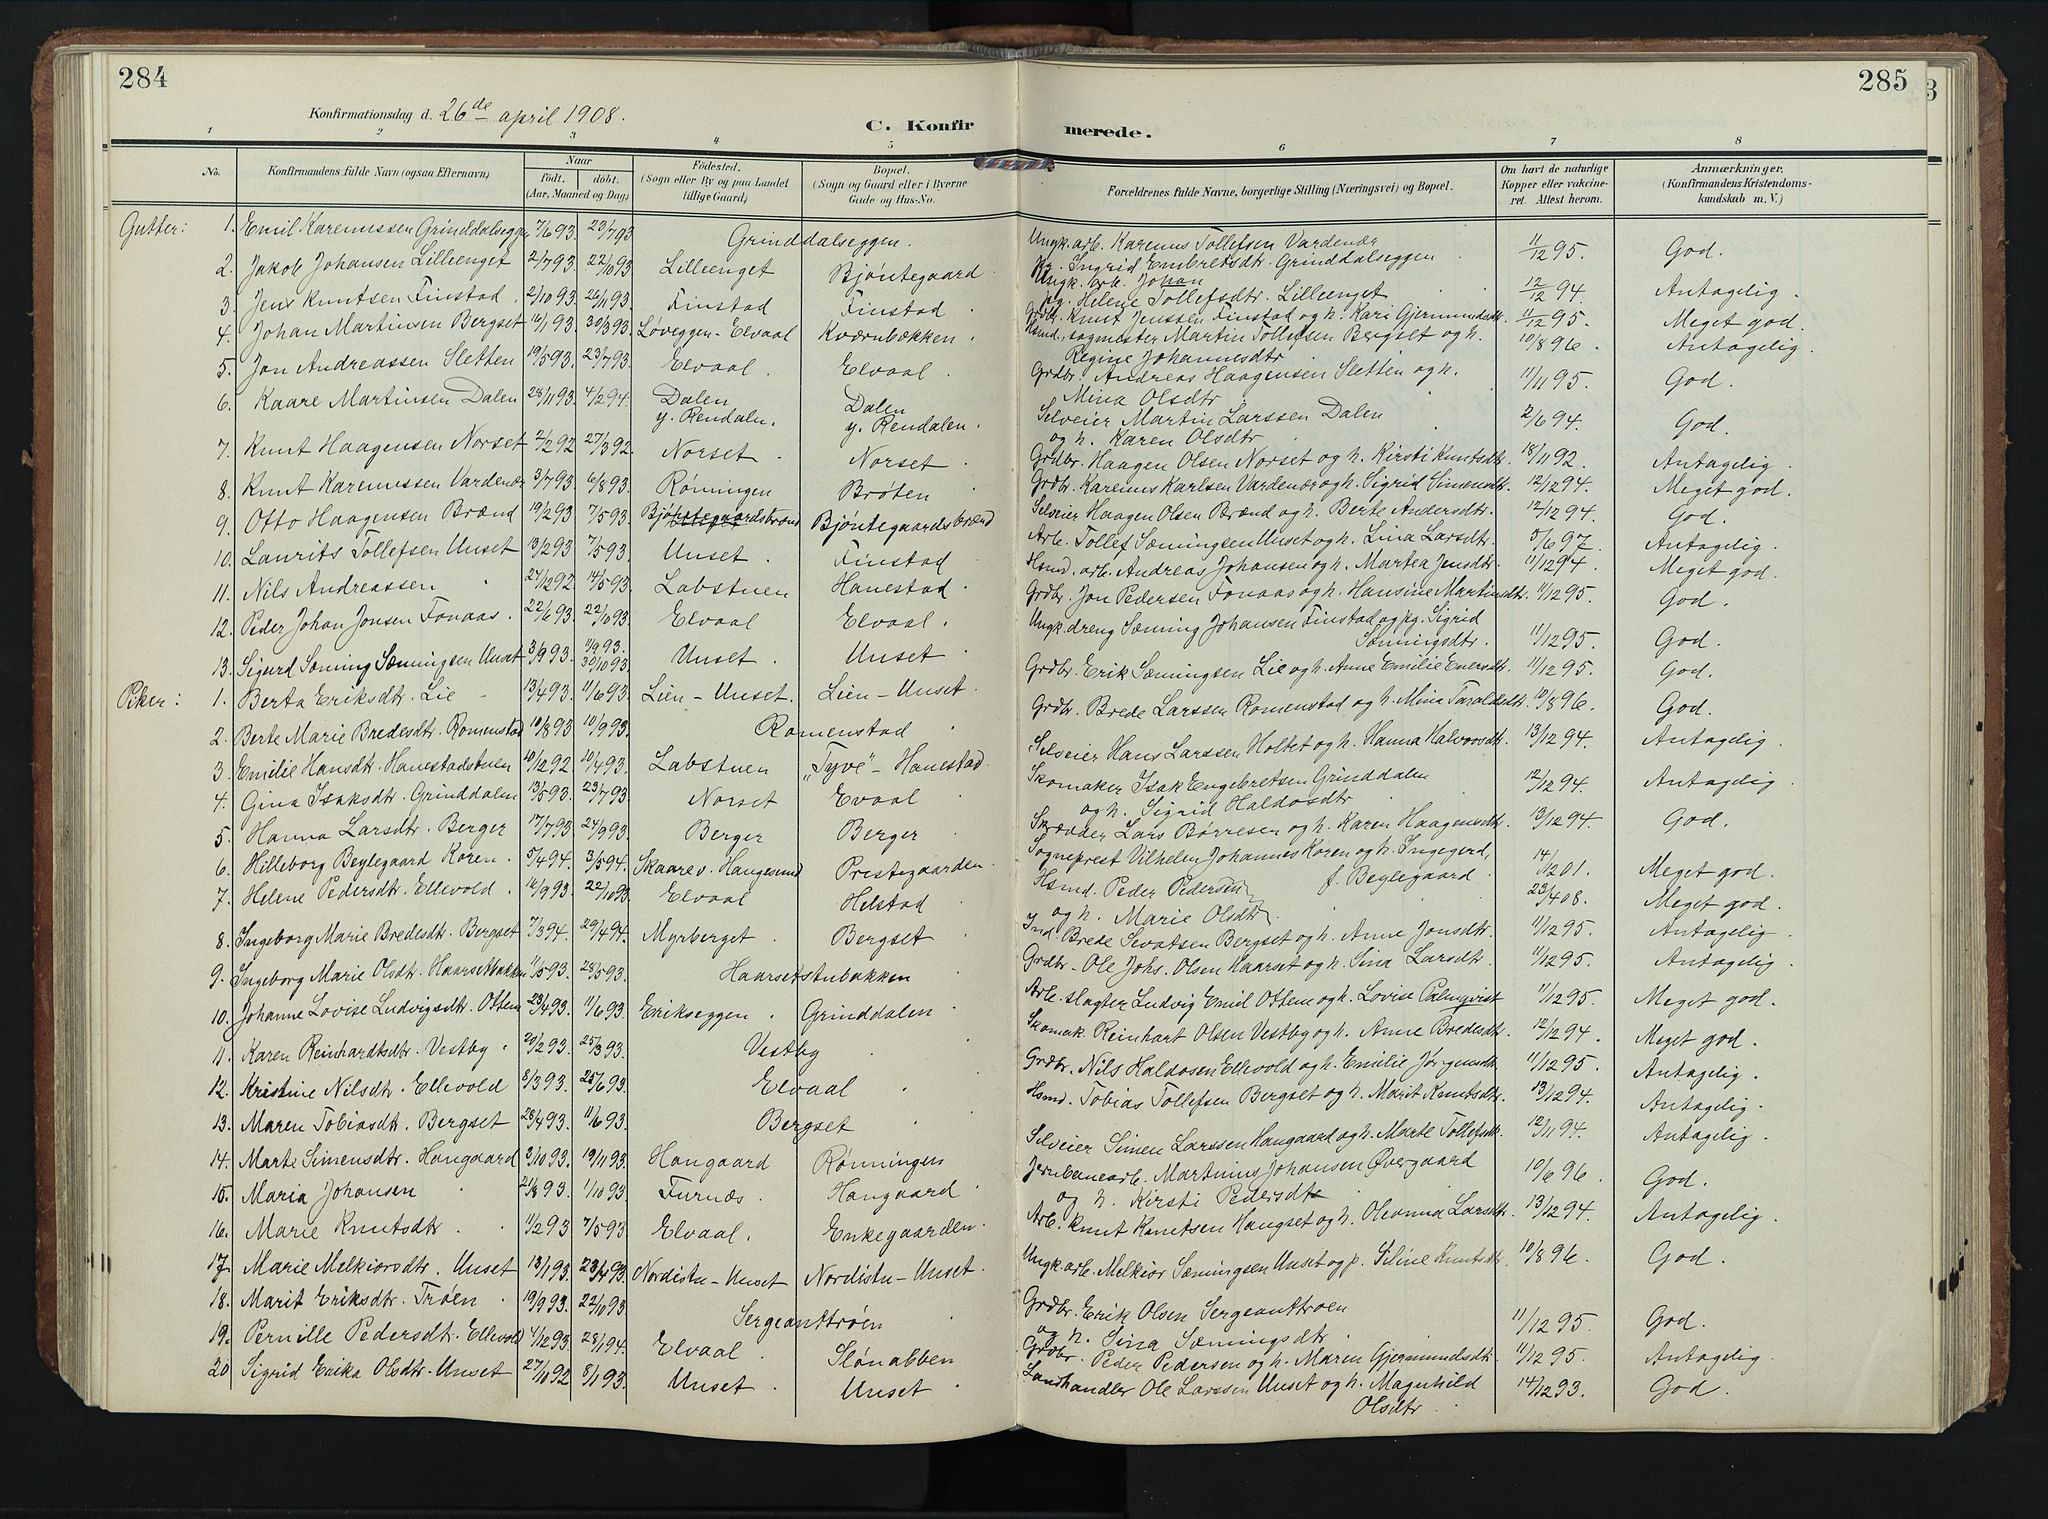 284
285
Konfirmationsdag d. 26de april 1908.
C. Konfirmerede.
1 2 3 4 5 6 7 8
No.
Konfirmandens fulde Navn (ogsaa Efternavn)
Naar
födt. döbt.
(Aar, Maaned og Dag)
Födested. (Sogn eller By og paa Landet tillige Gaard)
Bopæl. (Sogn og Gaard eller i Byerne Gade og Hus-No.
Forældrenes fulde Navne, borgerlige Stilling (Næringsvei) og Bopæl.
Om havt de naturlige Kopper eller vakcineret. Attest herom.
Anmærkninger. (Konfirmandens Kristendomskundskab m. V.)
Gutter: 1. Emil Karenussen Grinddalseggen 7/6 93. 23/7 93 Grinddalseggen. Ungk.arb. Karenus Tollefsen Vardenær Pg. Ingrid Embretsdtr. Grinddalseggen 11/12 95. God.
2. Jakob Johansen Lilleenget 2/7 93. 22/10 93 Lilleenget Bjöntegaard Ungk. arb. Johan pg. Helene Tollefsdtr. Lilleenget 12/12 94. Antagelig.
3. Jens Knutsen Finstad. 2/10 93. 26/11 93. Finstad Finstad Grdbr. Knut Jenssen Finstad og h. Kari Gjermundsdtr. 11/12 95. Meget god.
4. Johan Martinsen Bergset 14/1 93. 30/3 93. Loveggen-Elvaal Kværnbækken. Hsmd., sagmester Martin Tollefsen Bergset og h. Regine Johannesdtr 10/8 96. Antagelig.
5. Jon Andreassen Sletten 19/5 93. 23/7 93. Elvaal. Elvaal. Grdbr. Andreas Haagensen Sletten og h. Mina Olsdtr 11/11 95. God.
6. Kaare Martinsen Dalen 24/11 93. 4/2 94. Dalen y. Rendalen. Dalen y. Rendalen. Selveier Martin Larssen Dalen og h. Karen Olsdtr 2/6 94. God.
7. Knut Haagensen Norset 2/2 92 27/3 92. Norset. Norset. Grdbr. Haagen Olsen Norset og h. Kirsti Knutsdtr. 18/11 92. Antagelig.
8. Knut Karenussen Vardenær 3/7 93. 6/8 93. Röningen Bröten Grdbr. Karenus Karlsen Vardenær og h. Sigrid Simensdtr. 12/12 94. Meget god.
9. Otto Haagensen Brænd 19/2 93 7/5 93. Bjöntegaardsbrænd Bjöntegaardsbrænd Selveier Haagen Olsen Brænd og h. Berte Andersdtr. 12/12 94. God.
10. Laurits Tollefsen Unset 13/2 93. 7/5 93. Unset. Finstad Arb. Tollef Sæmingsen Unset og h. Lina Larsdtr. 5/6 97. Antagelig.
11. Nils Andreassen 27/12 92. 14/5 93. Labstuen Hanestad. Hsmd. arb. Andreas Johansen og h. Martea Jensdtr. 11/12 94. Meget god.
12. Peder Johan Jonsen Fonaas. 22/6 93. 22/10 93. Elvaal Elvaal. Grdbr. Jon Pedersen Fonaas og h. Hansine Martinsdtr. 11/12 95. God.
13. Sigurd Sæming Sæmingsen Unset 3/9 93. 11/9 93. 30/10 93. Unset. Unset Ungk.dreng Sæming Johansen Finstad og pg. Sigrid Sæmingsdtr. 11/12 95. God.
Piker: 1. Berta Eriksdtr. Lie 13/4 93. 11/6 93. Lien-Unset. Lien-Unset. Grdbr. Erik Sæmingsen Lie og h. Anne Emilie Enersdtr. 11/12 95. God.
2. Berte Marie Bredesdtr. Romenstad 10/8 93 10/9 93. Romenstad Grdbr. Brede Larssen Romenstad og h. Mina Taraldsdtr. 10/8 96. God.
3. Emilie Hansdtr. Hanestadstuen 10/12 92 10/4 93. Labstuen "Tyve" - Hanestad. Selveier Hans Larssen Holtet og h. Hanna Halvorsdtr. 13/12 94. Antagelig.
4. Gina Isaksdtr. Grinddalen 13/5 93. 23/7 93. Norset Evaal Skomaker Isak Engebretsen Grinddalen og h. Sigrid Haldosdtr 12/12 94. Antagelig.
5. Hanna Larsdtr. Berger 17/7 93. 24/9 93. Berger Berger Skrædder Lars Börresen og h. Karen Haagensdtr. 13/12 94. God.
6. Hilleborg Beylegaard Koren. 5/4 94. 3/5 94. Skaare v. Haugesund Prestegaarden Sogneprest Vilhelm Johannes Koren og h. Ingegerd, f. Beylegaard. 14/12 01. Meget god.
7. Helene Pedersdtr. Ellevold. 14/9 93. 22/10 93. Elvaal Helstad Hsmd. Peder Pedersen og h. Marie Olsdtr. 23/4 08. Meget god.
8. Ingeborg Marie Bredesdtr. Bergset 7/3 94. 29/4 94. Myrberget. Bergset Ind. Brede Sevatsen Bergset og h. Anne Jonsdtr. 11/12 95. Antagelig.
9. Ingeborg Marie Olsdtr. Haarsetbakken 11/5 93. 28/5 93. Haarsetstubakken Grdbr. Ole Johs. Olsen Haarset og h. Sina Larsdtr. 11/12 95. Antagelig.
10. Johanne Lovise Ludvigsdtr. Ottem 23/4 93. 11/6 93. Erikseggen. Grinddalen Arb. slagter Ludvig Emil Ottem og h. Lovise Palmqvist 11/12 95. Meget god.
11. Karen Reinhardtsdtr. Vestby. 20/2 93. 25/3 93. Vestby Skomak. Reinhart Olsen Vestby og h. Anne Bredesdtr. 12/12 94. Meget god.
12. Kristine Nilsdtr. Ellevold 8/3 93. 25/6 93. Elvaal Grdbr. Nils Haldosen Ellevold og h. Emilie Jörgensdtr 11/12 95. Antagelig.
13. Maren Tobiasdtr. Bergset 28/4 93. 11/6 93. Bergset Hsmd. Tobias Tollefsen Bergset og h. Marit Knutsdtr. 13/12 94. Antagelig.
14. Marte Simensdtr. Haugaard 3/10 93. 19/11 93. Haugaard Rönningen Selveier Simen Larssen Haugaard og h. Marte Tollefsdtr. 12/11 94. Antagelig.
15. Maria Johansen 21/8 93. 1/10 93. Furnæs. Haugaard. Jernbanearb. Martinius Johansen Övergaard og h. Kirsti Pedersdtr 10/6 96. God.
16. Marie Knutsdtr 11/2 93 7/5 93. Elvaal. Enkegaarden. Arb. Knut Knutsen Haugset og h. Oleanna Larsdtr. 13/12 94. Antagelig.
17. Marie Melkiorsdtr. Unset 13/1 93. 23/4 93. Nordistu-Unset Nordistu-Unset. Ungk.arb. Melkior Sæmingsen Unset og p. Siline Knutsdtr. 10/8 96. God.
18. Marit Eriksdtr. Tröen 19/9 93. 22/10 93. Sergeanttröen Grdbr. Erik Olsen Sergeanttröen og h. Sina Sæmingsdtr. 11/12 95. God.
19. Pernille Pedersdtr. Ellevold 4/12 93. 28/1 94. Elvaal. Slönabben Grdbr. Peder Pedersen og h. Maren Gjermundsdtr. 11/12 95. Antagelig.
20 Sigrid Erika Olsdtr. Unset 27/10 92 8/1 93. Unset. Unset Landhandler Ole Larssen Unset og h. Magnhild Olsdtr. 14/12 93. God.